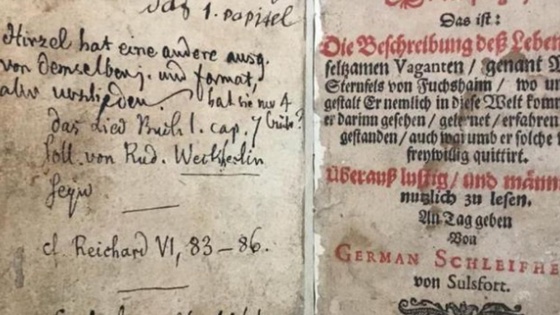 das 1. papitel
Hirzel hat eine andere ausg.
von demselben j. und format,
aber verschieden. hat sie nur 4
Büch.?
das Lied Buch 1. cap. 7
soll von Rud. Weckherlin
seyn
cf. Reichard VI, 83–86.
Das ist:
Die Beschreibung deß Leben
seltzamen Vaganten / genant M
Sternfels von Fuchshaim / wo un
gestalt Er nemlich in diese Welt kom
er darinn gesehen / gelernet / erfahren
gestanden / auch warumb er solche
freywillig quittirt.
Überauß lustig / und männ
nutzlich zu lesen.
An Tag geben
Von
GERMAN SCHLEIFHE
von Sulsfort.